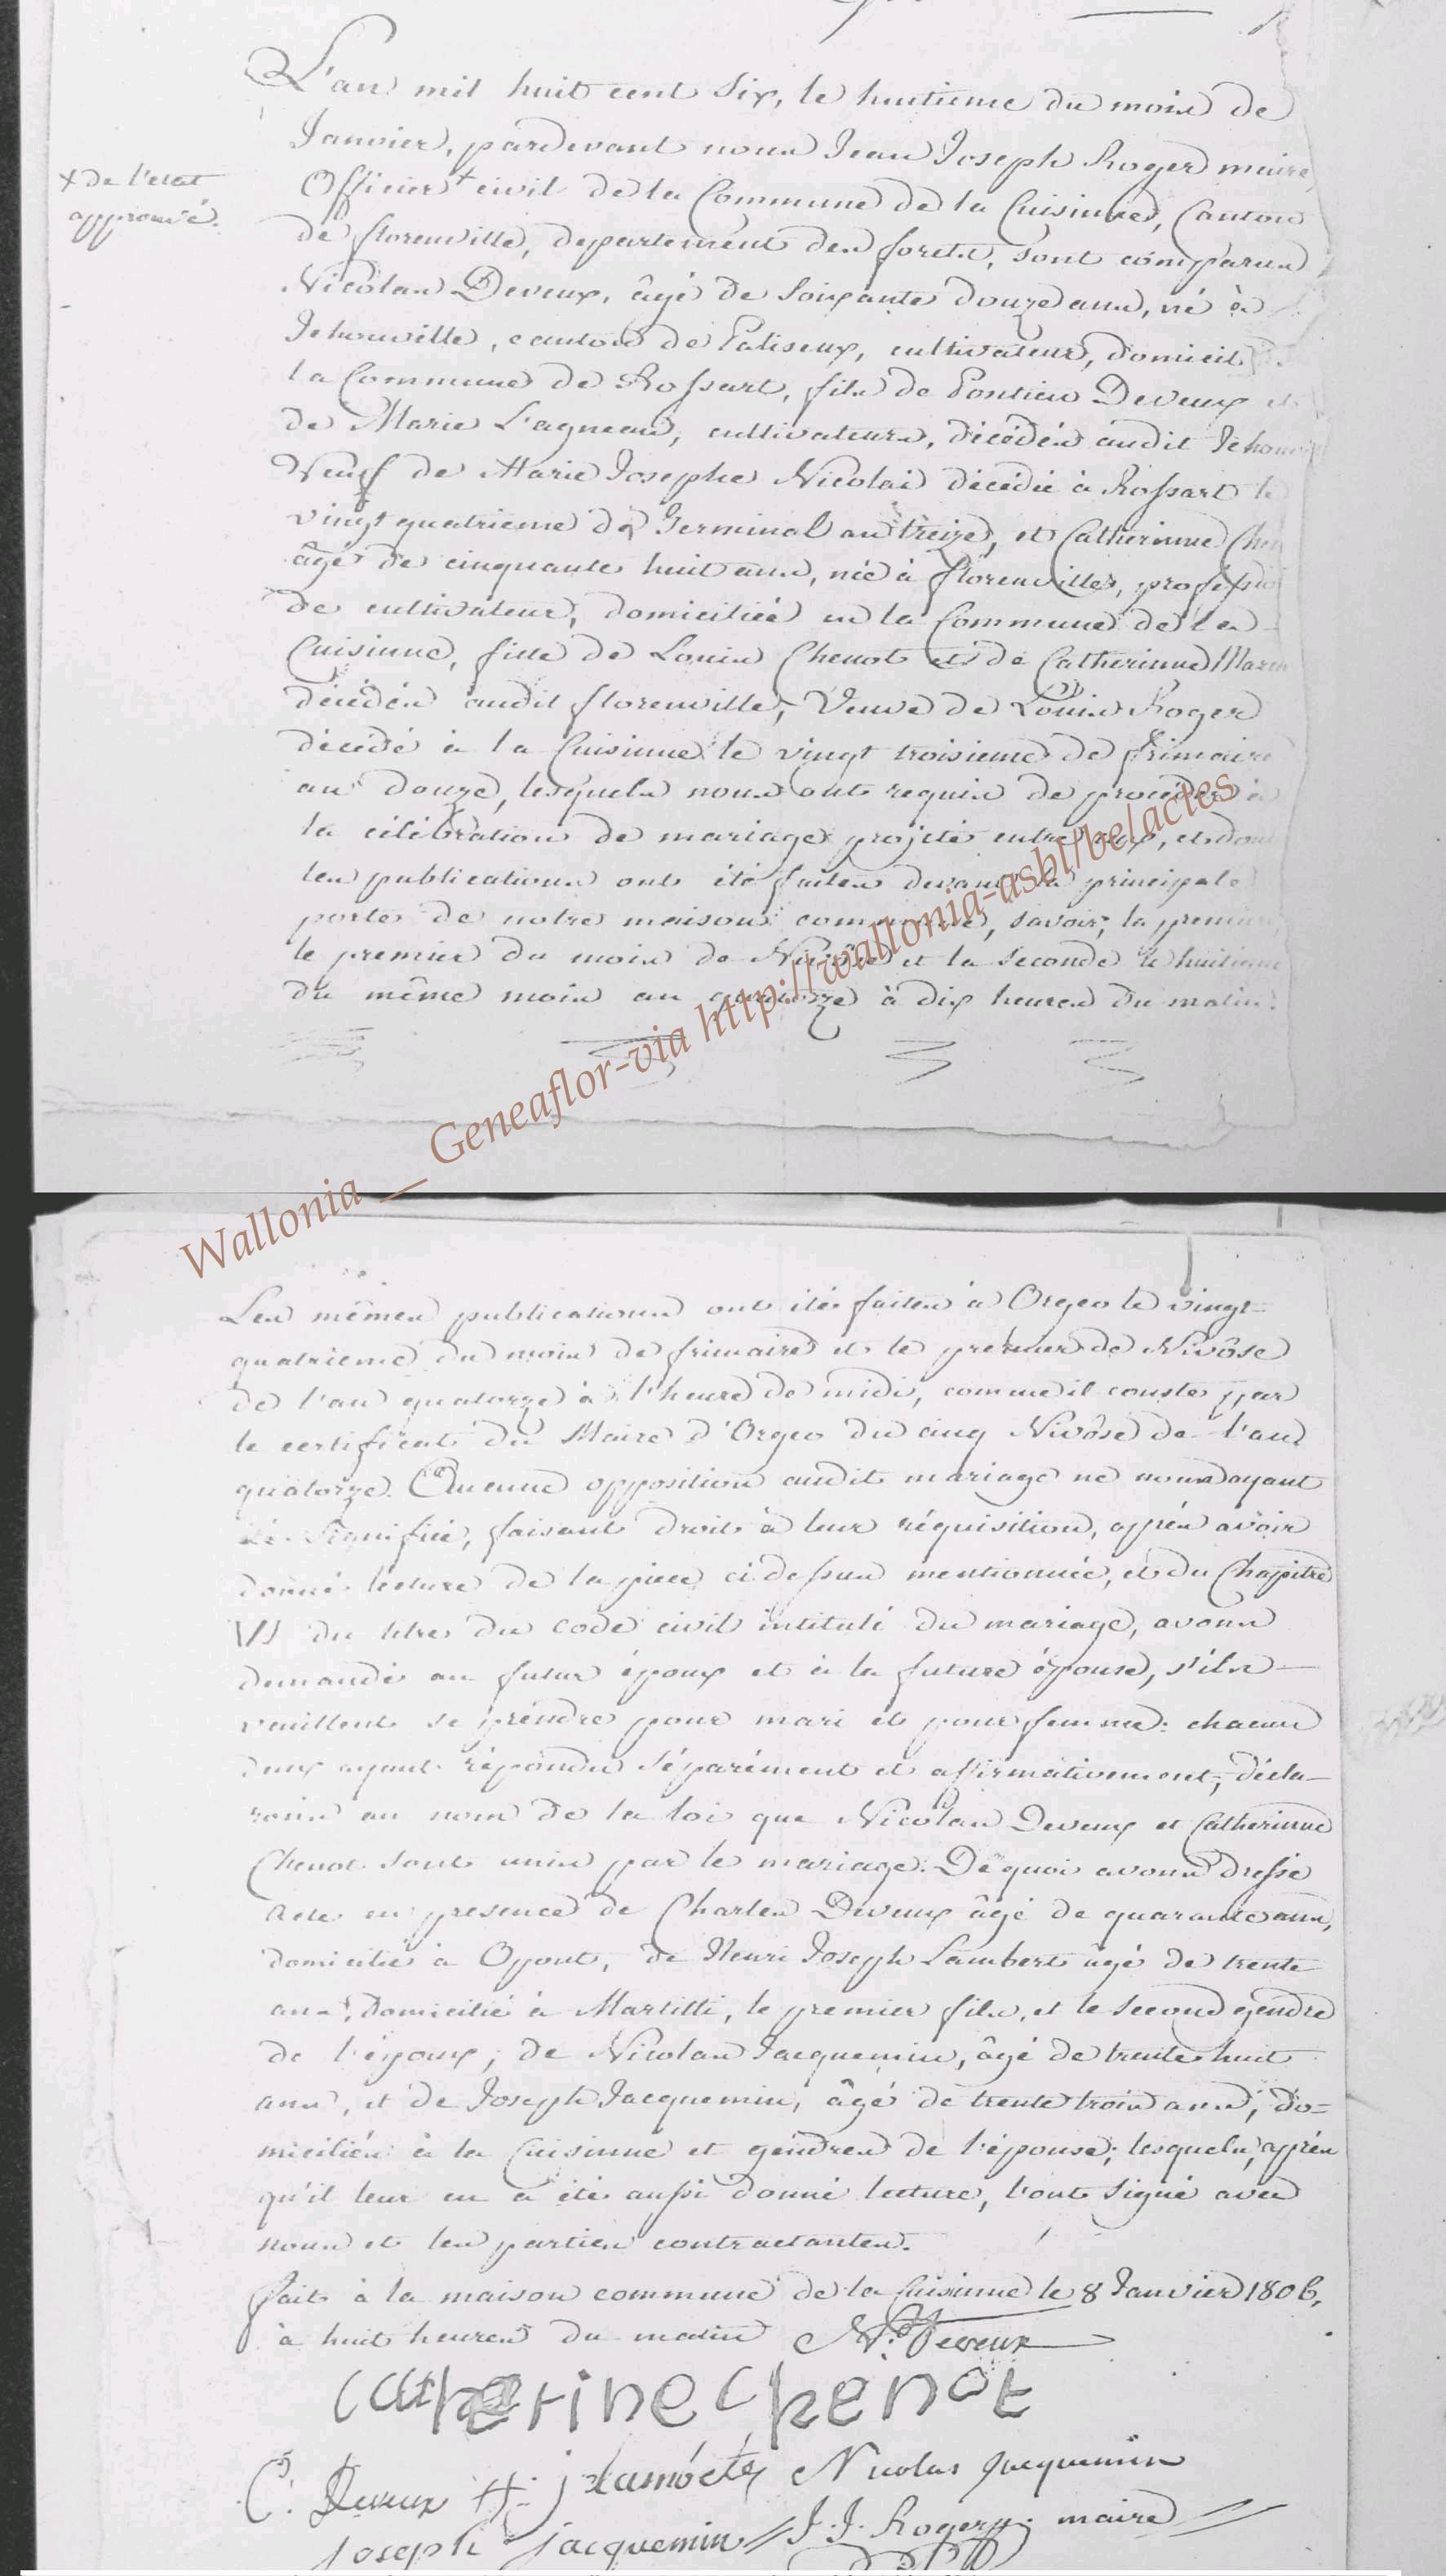 L'an mil huit cent six, le huitieme du mois de
Janvier, pardevant nous Jean Joseph Roger maire,
x de l'etat
approuvé.
Officier + civil de la Commune de la Cuisinne, Canton
de florenville, departement des forets, sont comparus
Nicolas Deveux, âgé de soixante douze ans, né à
Jehonville, canton de Paliseux, cultivateur, domicil
la Commune de Rossart, fils de Pontien Deveux et
de Marie L'agneau, cultivateurs, décédés audit Jehon
Veuf de Marie Josephe Nicolai décédée à Rossart le
vingt quatrieme de Germinal an treize, et Catherinne Chen
âgé de cinquante huit ans, née à florenville, professio
de cultivateur, domiciliée en la Commune de la
Cuisinne, fille de Louis Chenot et de Catherinne Mar
décédés audit florenville, Veuve de Louis Roger
décédé à la Cuisinne le vingt troisieme de frimaire
an douze, lesquels nous ont requis de procéder à
la célébration de mariage projeté entre eux, et dont
les publications ont été faites devant la principale
porte de notre maison commune, savoir; la premiere
le premier du mois de Nivôse et la seconde le huitieme
du même mois an quatorze à dix heures du matin.
Wallonia __ Geneaflor-via http://wallonia-asbl/be/actes
Les mêmes publications ont été faites à Orgeo le vingt-
quatrieme du mois de frimaire et le premier de Nivôse
de l'an quatorze à l'heure de midi, comme il conste par
le certificat du Maire d'Orgeo du cinq Nivôse de l'an
quatorze. Aucune opposition audit mariage ne nous ayant
été signifiée, faisant droit à leur réquisition, après avoir
donné lecture de la piece ci dessus mentionnée, et du Chapitre
VI du titre du code civil intitulé du mariage, avons
demandé au futur époux et à la future épouse, s'ils
veuillent se prendre pour mari et pour femme: chacun
deux ayant répondu séparément et affirmativement, décla-
rons au nom de la loi que Nicolas Deveux et Catherinne
Chenot sont unis par le mariage. De quoi avons dressé
acte en presence de Charles Deveux âgé de quarante ans,
domicilié à Opont, de Henri Joseph Lambert âgé de trente
ans, domicilié à Martilli, le premier fils, et le second gendre
de l'époux; de Nicolas Jacquemin, âgé de trente huit
ans, et de Joseph Jacquemin, âgé de trente trois ans, do=
miciliés à la Cuisinne et gendres de l'épouse; lesquels, après
qu'il leur en a été aussi donné lecture, l'ont signé avec
nous et les parties contractantes.
fait à la maison commune de la Cuisinne le 8 Janvier 1806,
à huit heures du matin N. Deveux
Catherine Chenot
C. Deveux H. j Nicolas Jacquemin
Joseph Jacquemin J. J. Roger maire